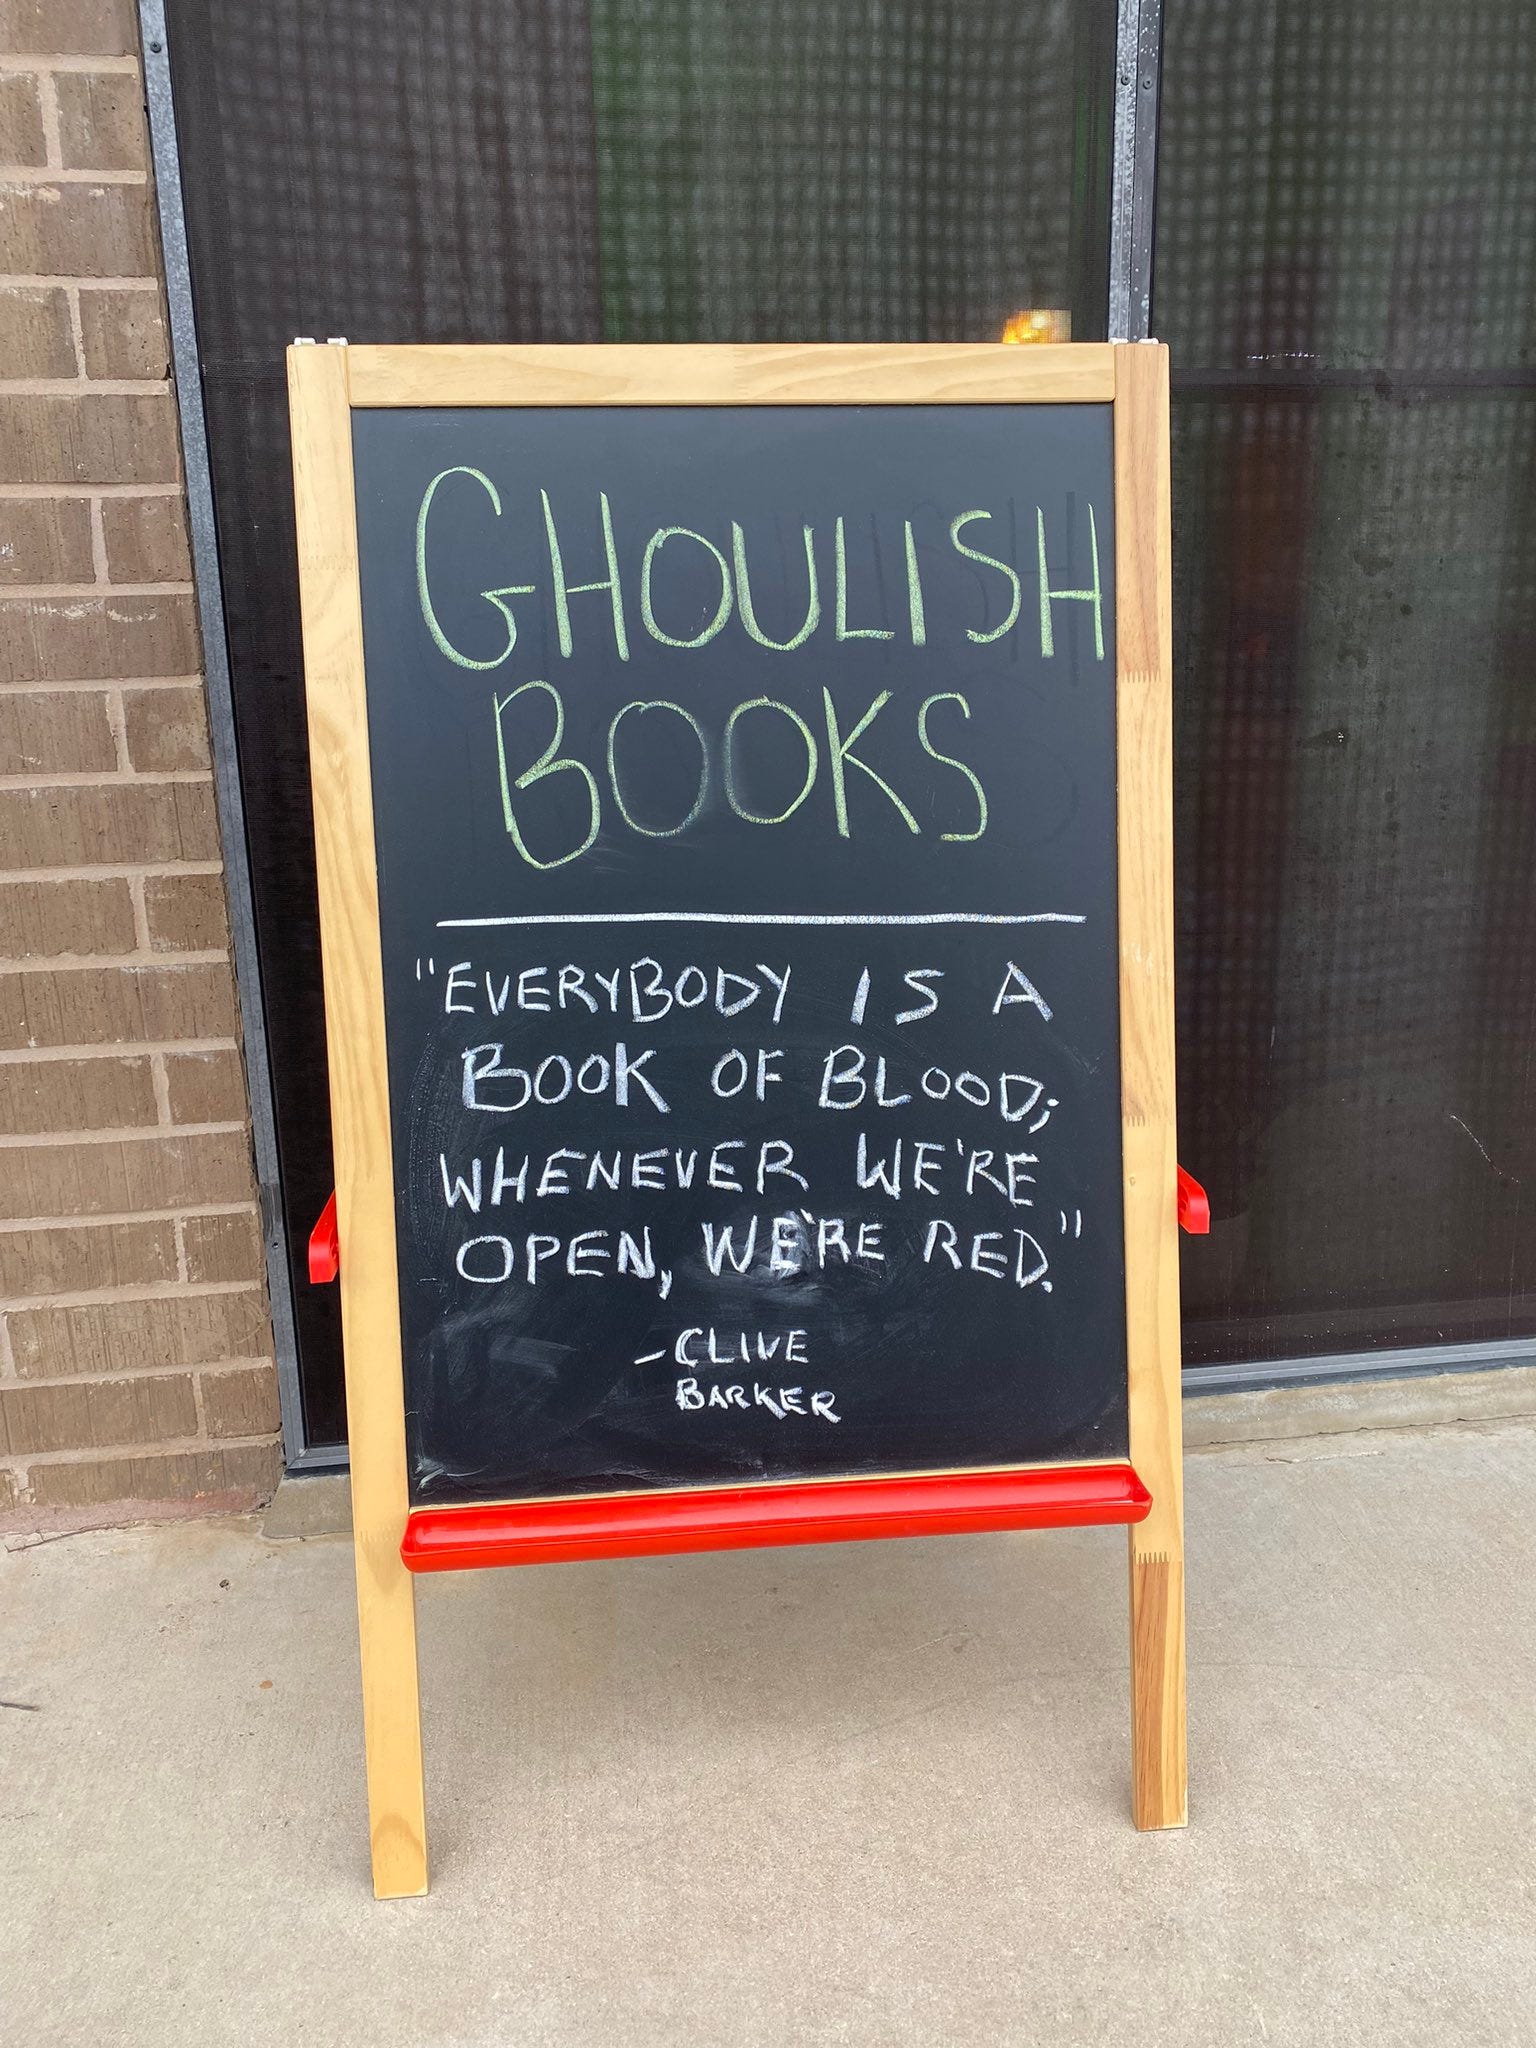 GHOULISH
BOOKS
"EVERYBODY IS A
BOOK OF BLOOD;
WHENEVER WE'RE
OPEN, WE'RE RED."
-CLIVE
BARKER